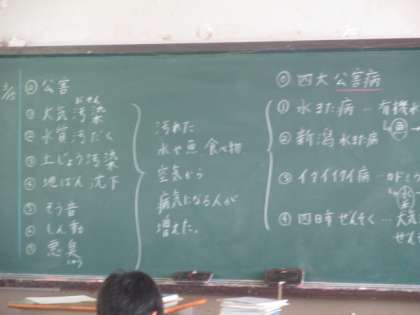 ◎ 公害
おせん
① 大気汚染
② 水質汚だく
③ 土じょう汚染
④ 地ばん沈下
⑤ そう音
⑥ しん動
⑦ 悪臭
汚れた
水や魚、食べ物
空気から
病気になる人が
増えた。
◎ 四大公害病
① 水また病…有機水
魚
② 新潟水また病
③ イタイイタイ病…カドミウ
水
④ 四日市ぜんそく…大気
ぜん